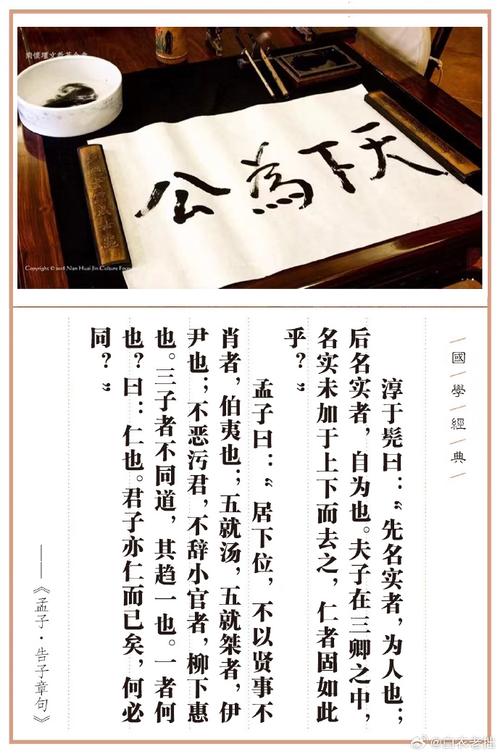 南懷瑾文教基金會
天下為公
Copyright © 2018 Nan Huai Jin Culture
國學經典
淳于髡曰：“先名实者，为人也；
后名实者，自为也。夫子在三卿之中，
名实未加于上下而去之，仁者固如此
乎？”
孟子曰：“居下位，不以贤事不
肖者，伯夷也；五就汤，五就桀者，伊
尹也；不恶污君，不辞小官者，柳下惠
也。三子者不同道，其趋一也。一者何
也？曰：仁也。君子亦仁而已矣，何必
同？”
——《孟子·告子章句》
@白衣老拙